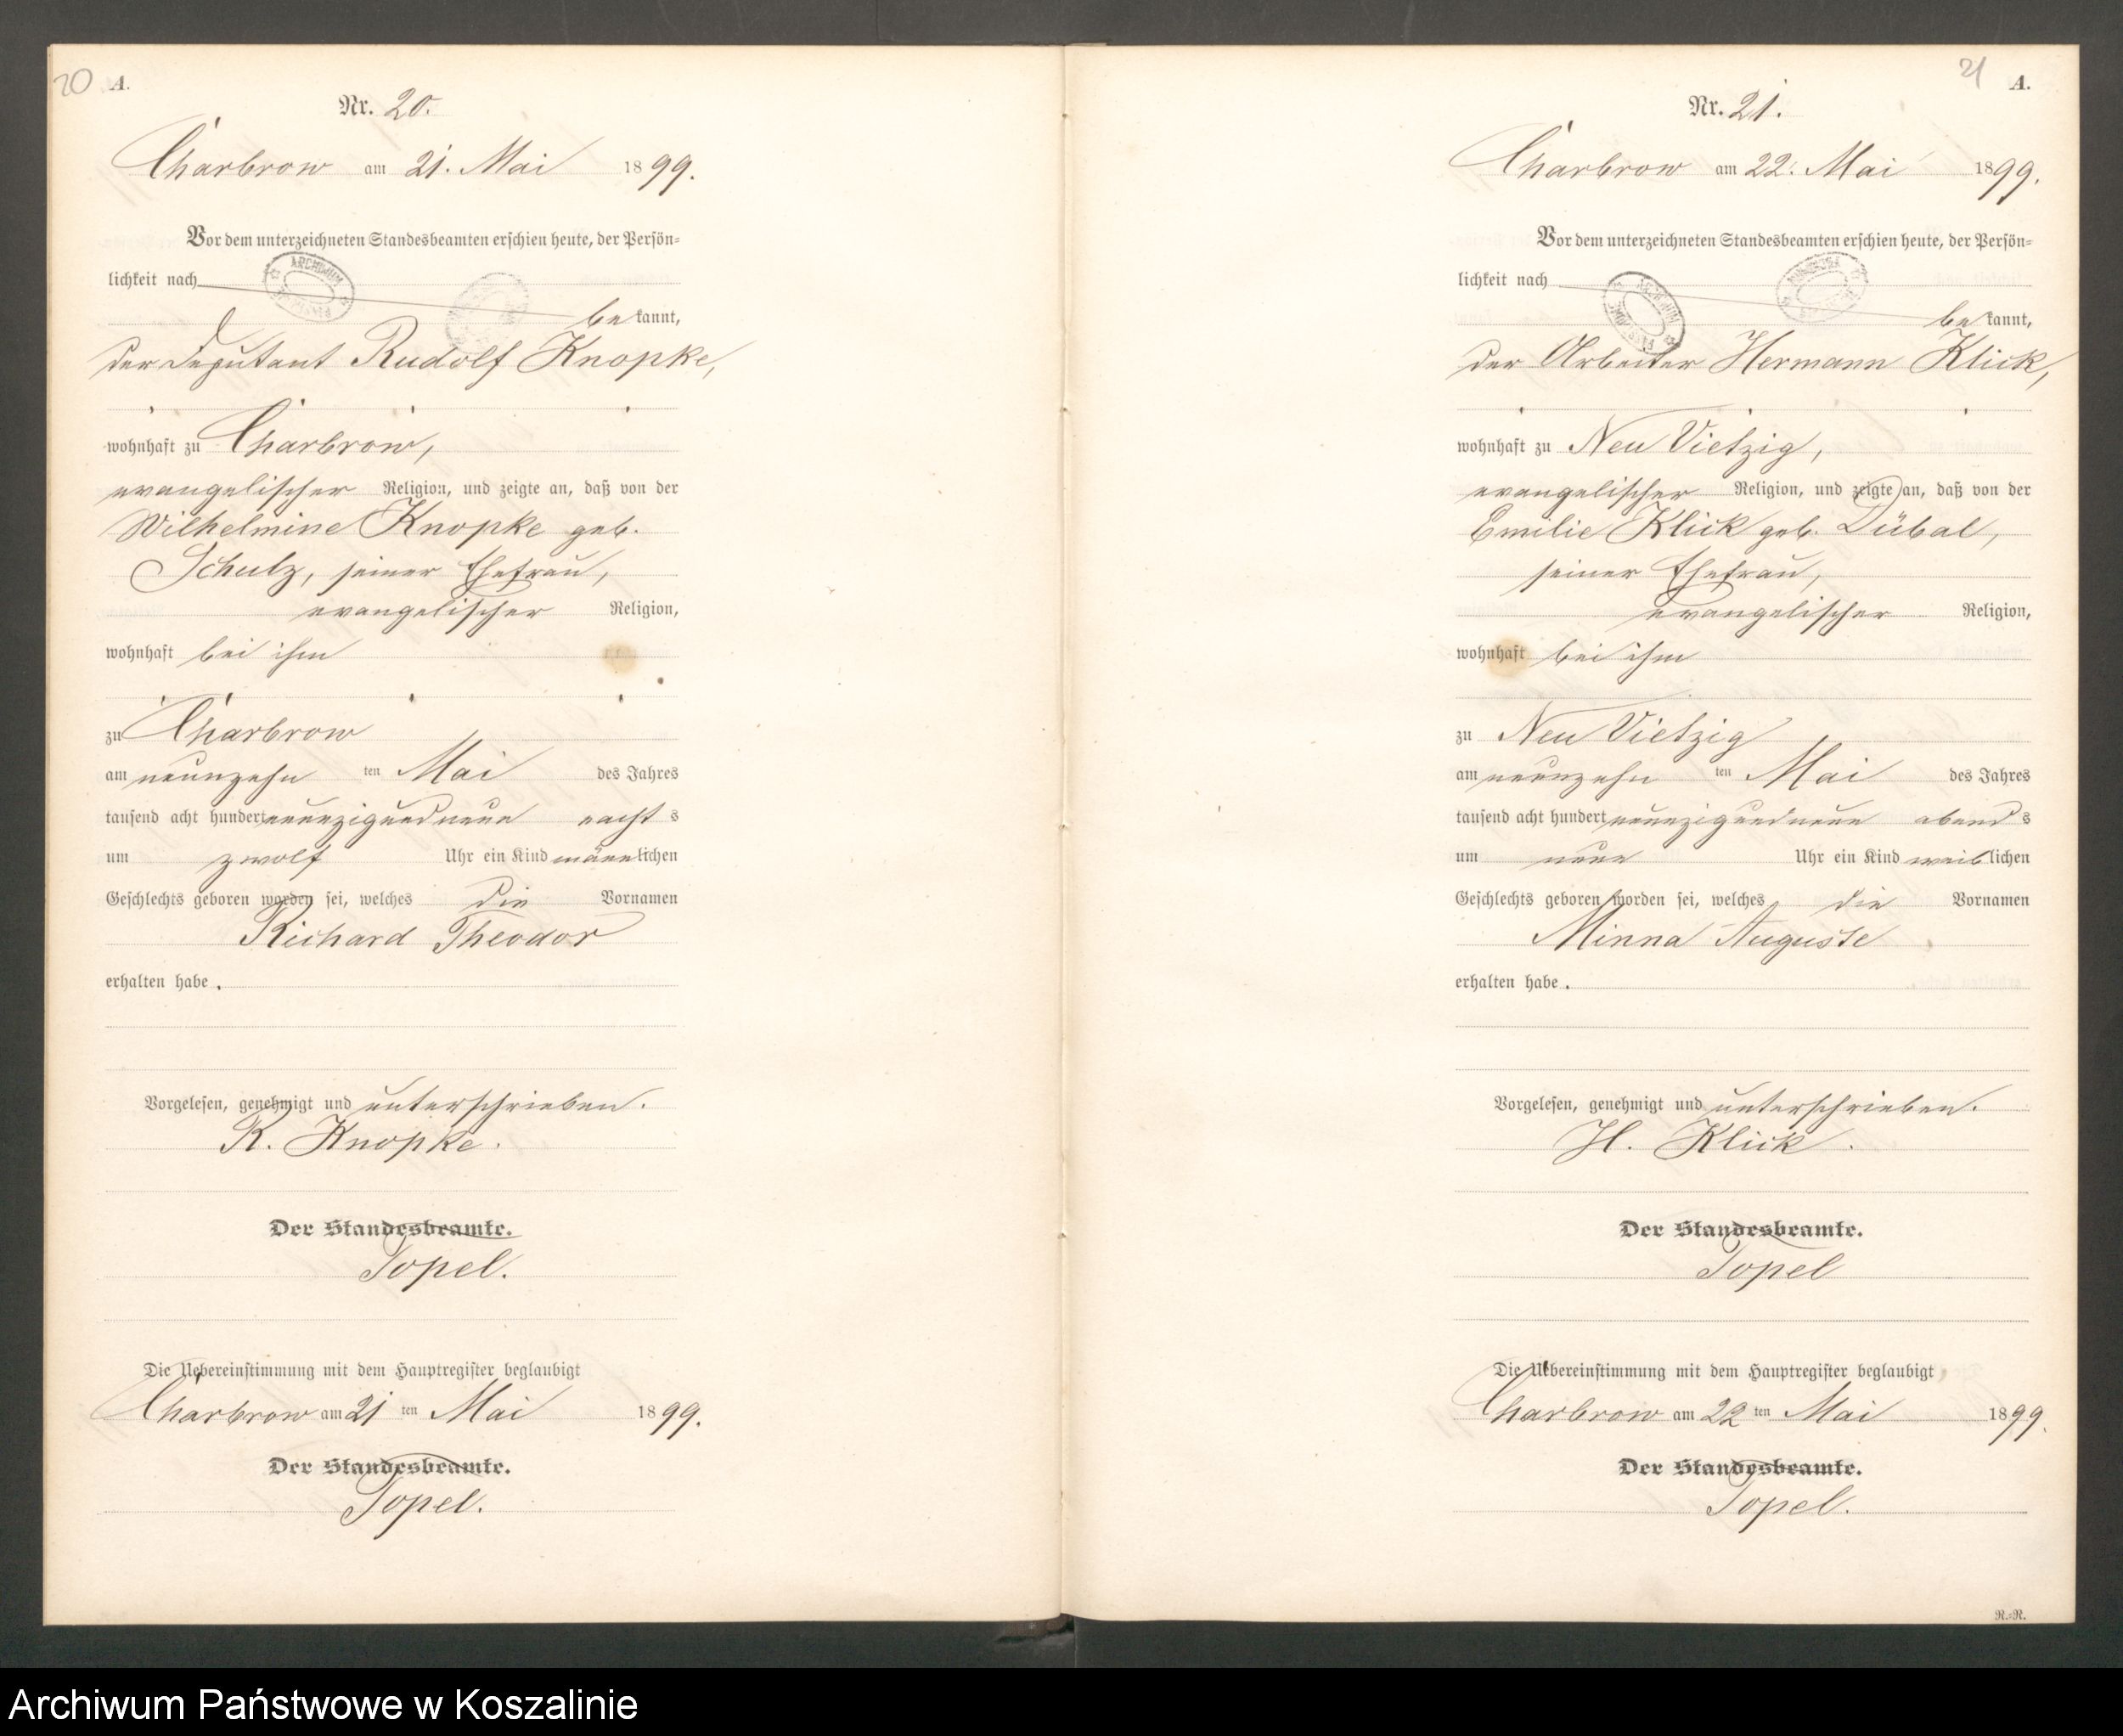 20 A.
Nr. 20.
Charbrow am 21. Mai 1899.
Vor dem unterzeichneten Standesbeamten erschien heute, der Persön-
lichkeit nach
bekannt,
der Deputant Rudolf Knopke,
wohnhaft zu Charbrow,
evangelischer Religion, und zeigte an, daß von der
Wilhelmine Knopke geb.
Schulz, seiner Ehefrau,
evangelischer Religion,
wohnhaft bei ihm
zu Charbrow
am neunzehn ten Mai des Jahres
tausend acht hundert neunzigundneun nachts
um zwölf Uhr ein Kind männlichen
Geschlechts geboren worden sei, welches die Vornamen
Richard Theodor
erhalten habe.
Vorgelesen, genehmigt und unterschrieben.
R. Knopke.
Der Standesbeamte.
Topel.
Die Uebereinstimmung mit dem Hauptregister beglaubigt
Charbrow am 21 ten Mai 1899.
Der Standesbeamte.
Topel.
21 A.
Nr. 21.
Charbrow am 22. Mai 1899.
Vor dem unterzeichneten Standesbeamten erschien heute, der Persön-
lichkeit nach
ARCHIWUM
bekannt,
der Arbeiter Hermann Klick,
wohnhaft zu Neu Vietzig,
evangelischer Religion, und zeigte an, daß von der
Emilie Klick geb. Dübal,
seiner Ehefrau,
evangelischer Religion,
wohnhaft bei ihm
zu Neu Vietzig
am neunzehn ten Mai des Jahres
tausend acht hundert neunzigundneun abends
um neun Uhr ein Kind weiblichen
Geschlechts geboren worden sei, welches die Vornamen
Minna Auguste
erhalten habe.
Vorgelesen, genehmigt und unterschrieben.
H. Klick.
Der Standesbeamte.
Topel
Die Uebereinstimmung mit dem Hauptregister beglaubigt
Charbrow am 22 ten Mai 1899.
Der Standesbeamte.
Topel.
R.-R.
Archiwum Państwowe w Koszalinie